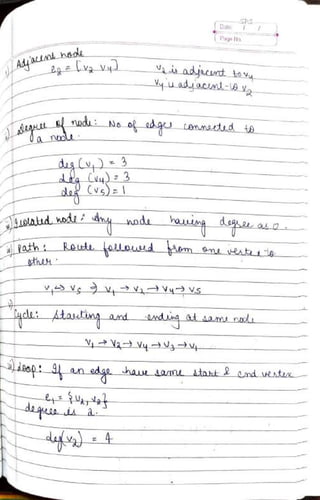 Date / /
Page No.
i) Adjacent node
e₂ = [v₂ v₄] v₂ is adjacent to v₄
v₄ is adjacent to v₂
Degree of node: No of edges connected to
a node.
deg (v₁) = 3
deg (v₄) = 3
deg (v₅) = 1
Isolated node: Any node having degree as 0.
Path: Route followed from one vertex to
other.
v₁ → v₅ ⇒ v₁ → v₂ → v₄ → v₅
v) Cycle: Starting and ending at same node
v₁ → v₂ → v₄ → v₃ → v₁
Loop: If an edge have same start & end vertex
e₁ = {v₂, v₂}
degree is 2.
deg(v₂) = 4